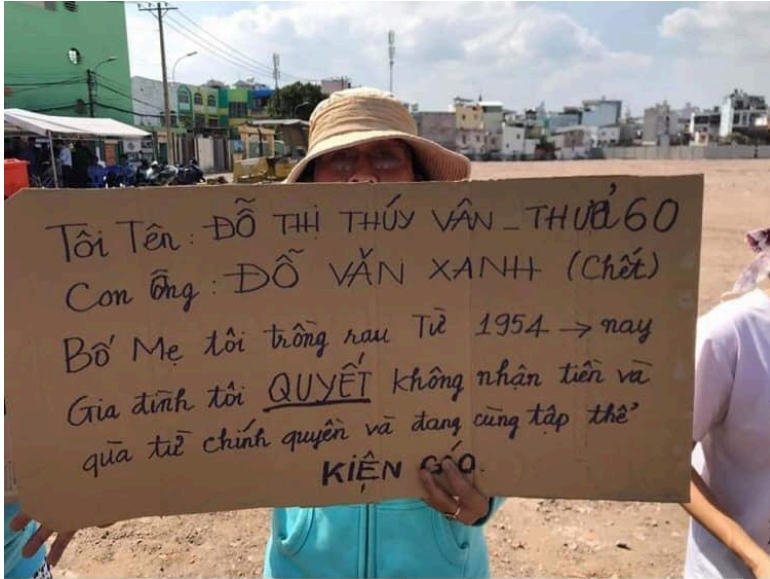 Tôi Tên: ĐỖ THỊ THÚY VÂN _ THửa 60
Con ông: ĐỖ VĂN XANH (Chết)
Bố Mẹ tôi trồng rau Từ 1954 → nay
Gia đình tôi QUYẾT không nhận tiền và
qùa từ chính quyền và đang cùng tập thể
KIỆN CÁO.